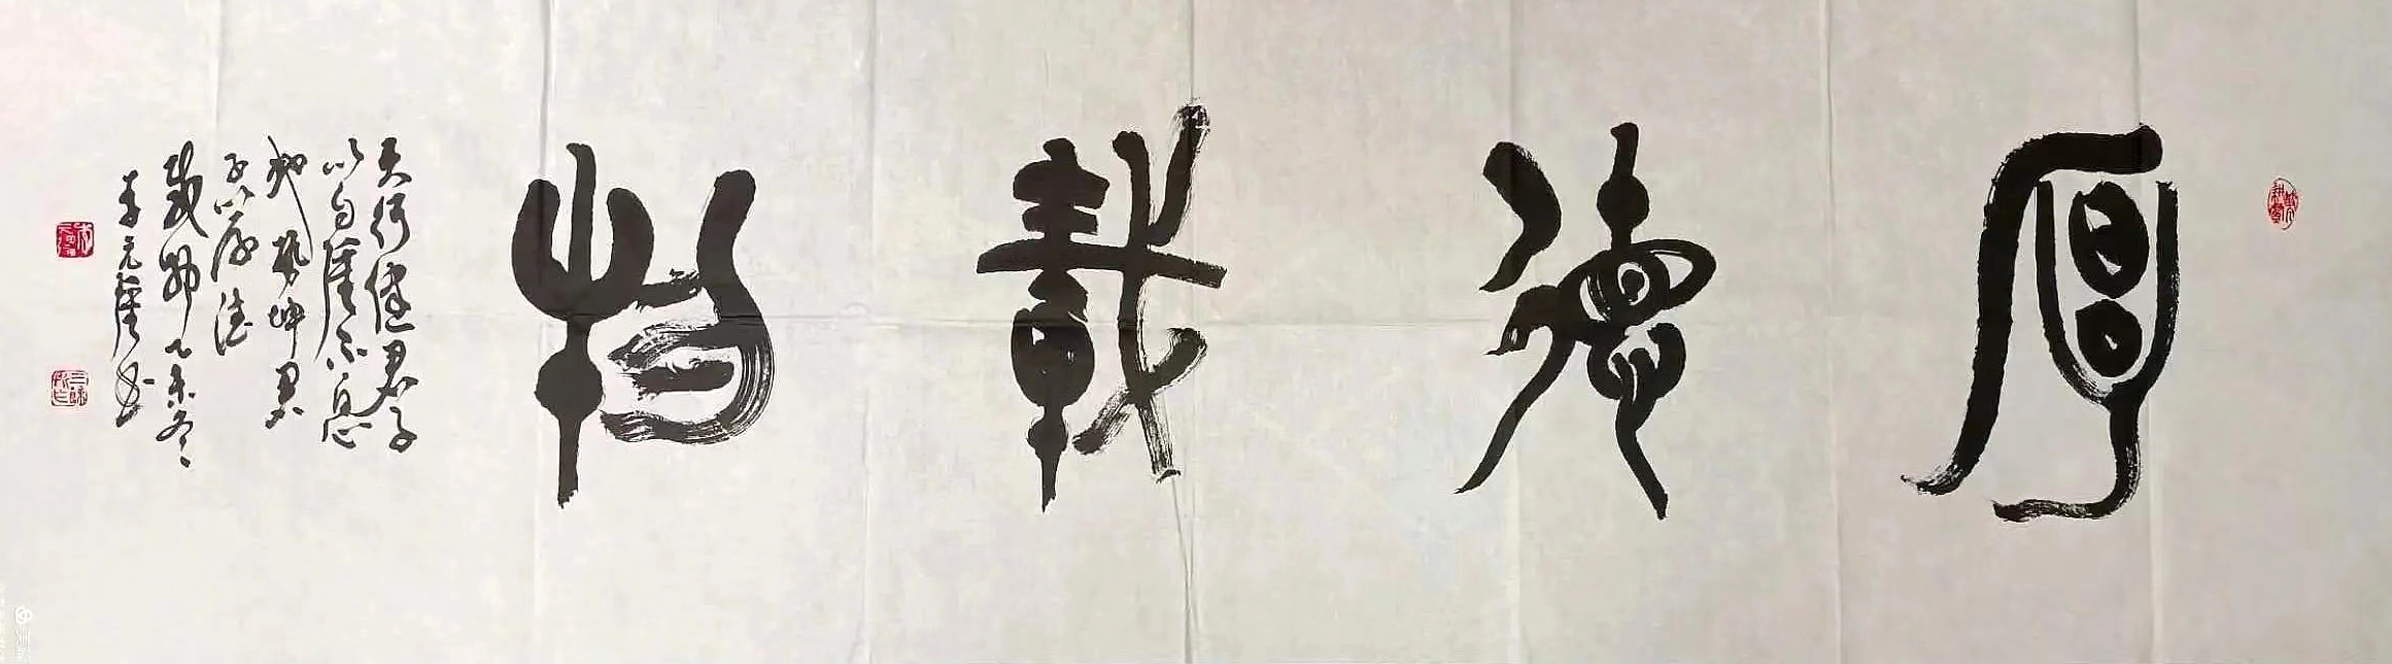 厚德載物
天行健君子
以自強不息
地勢坤君
子以厚德
載物乙未冬
李元隆書